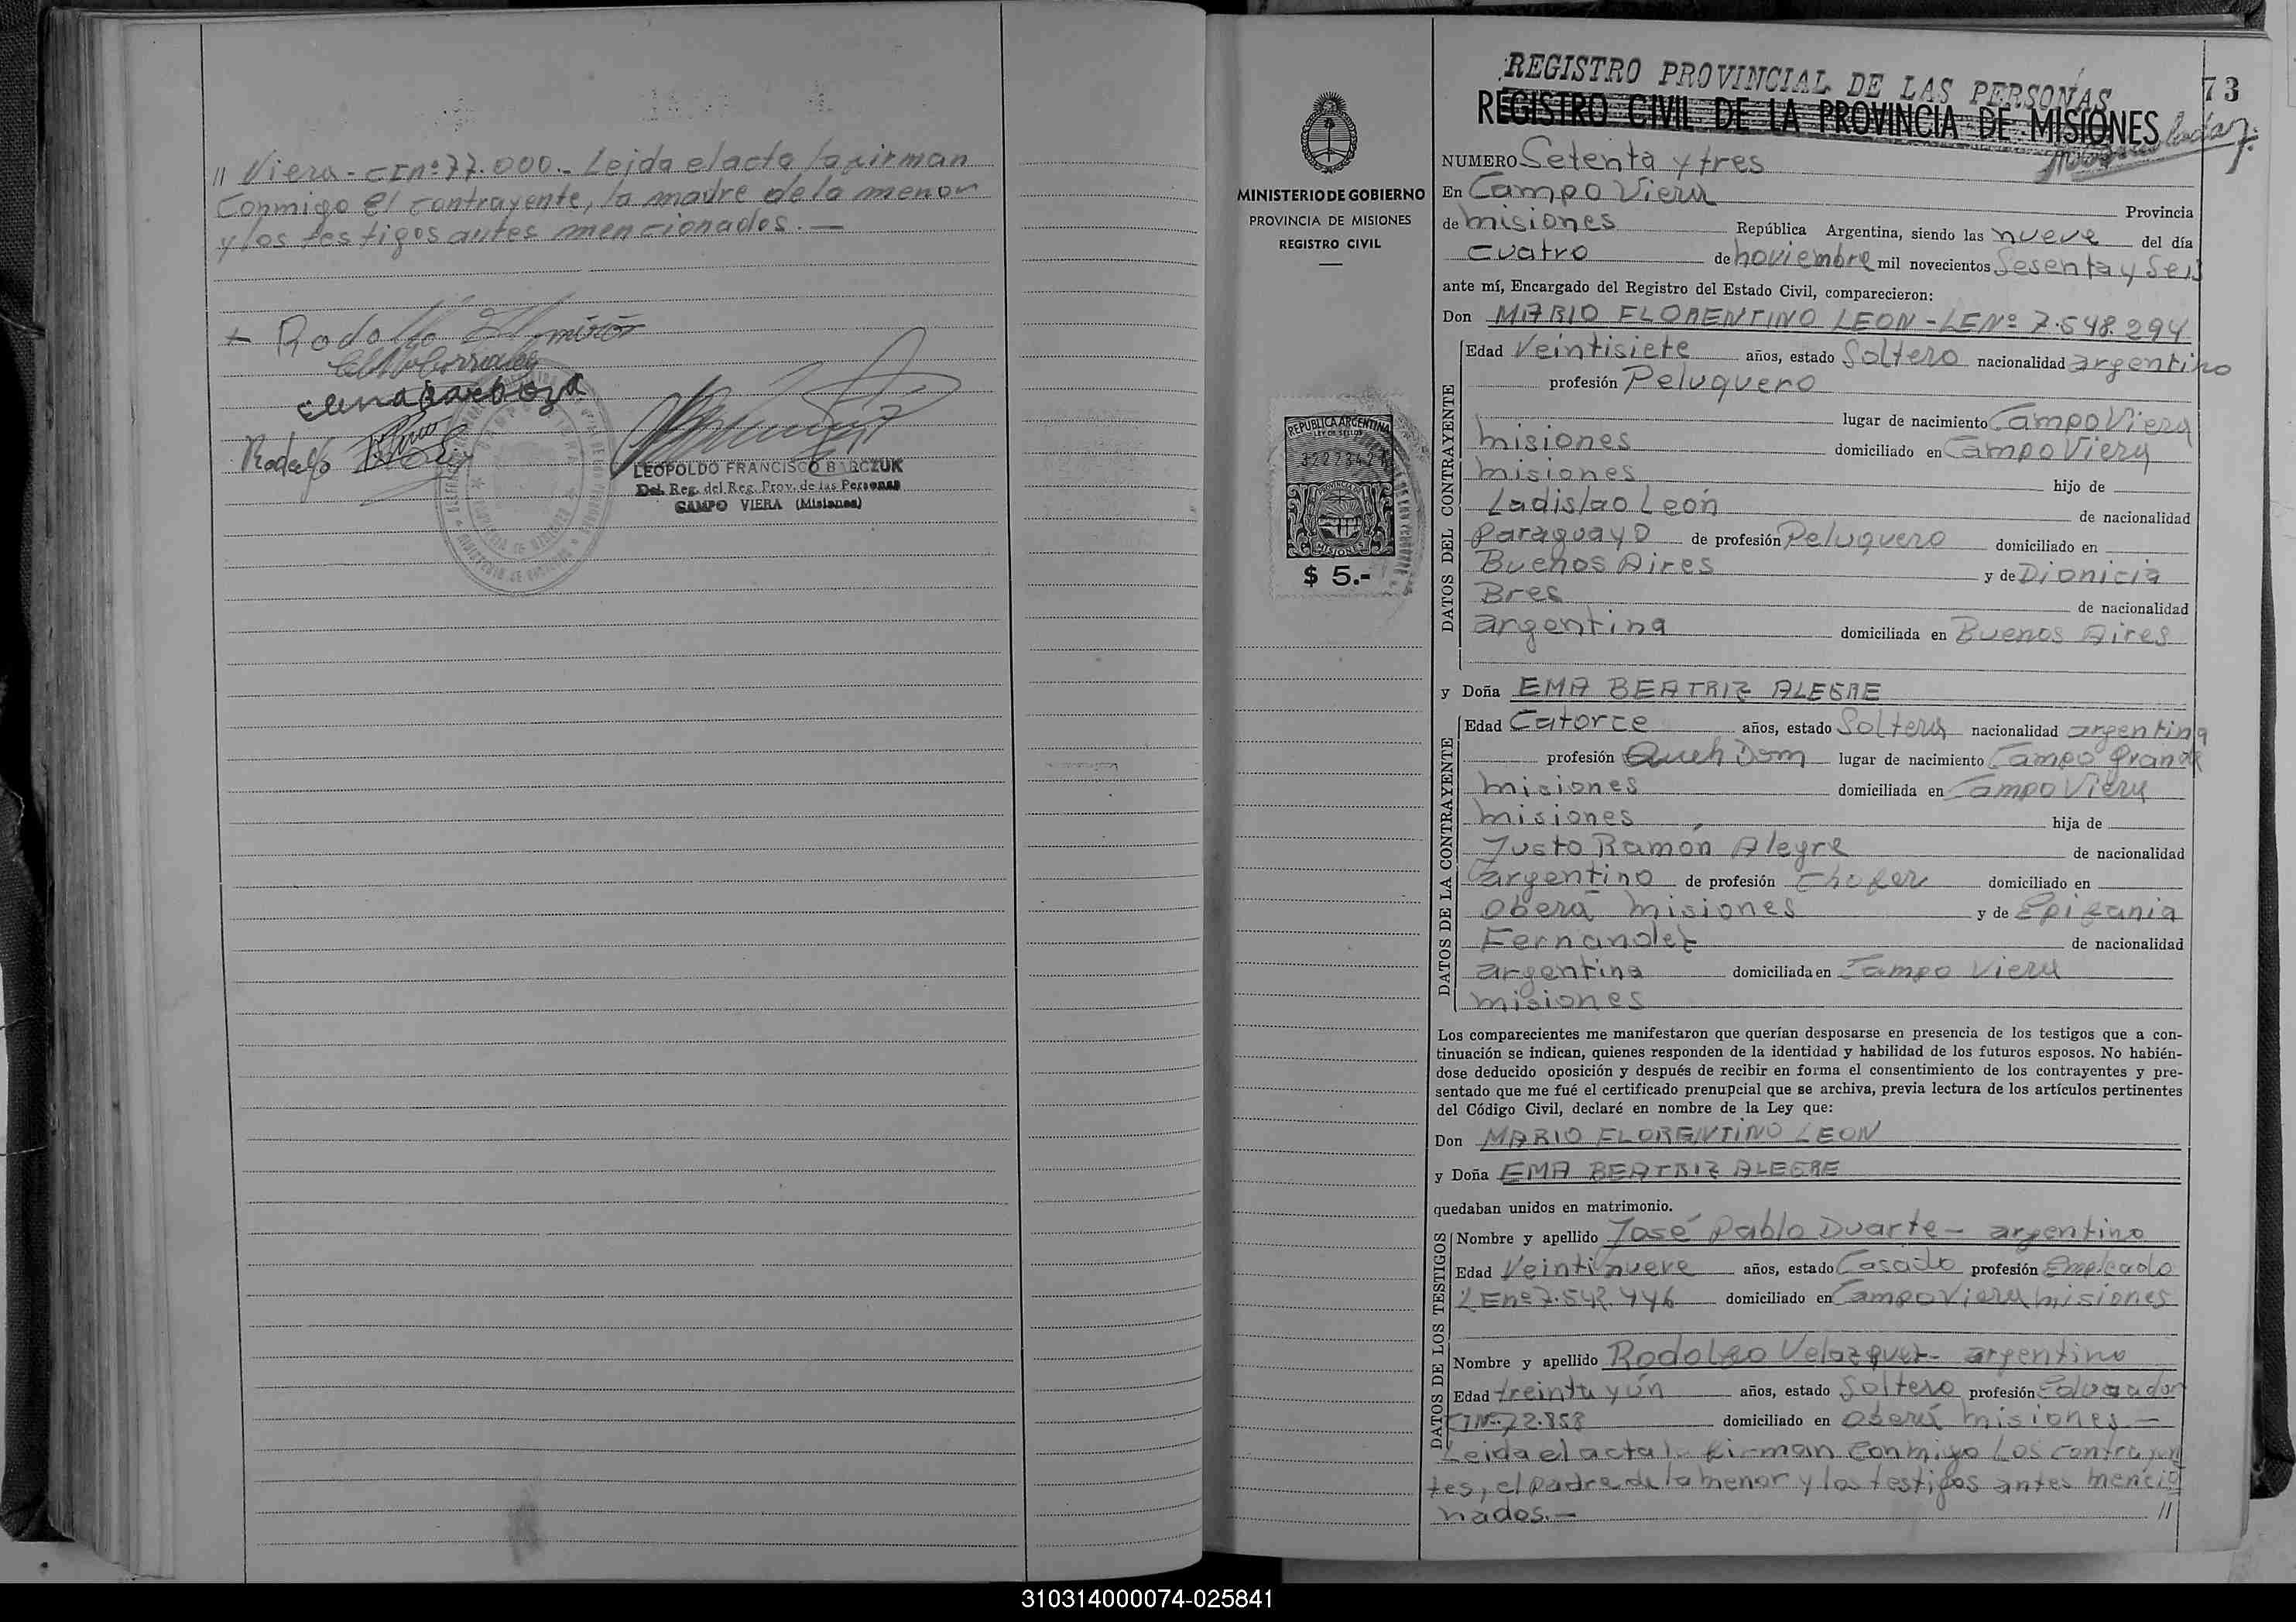 // Viera - CI nº 77.000.- Leida el acta la firman
conmigo el contrayente, la madre de la menor
y los testigos antes mencionados.—
+ Rodolfo
Rodolfo
LEOPOLDO FRANCISCO BARCZUK
Del. Reg. del Reg. Prov. de las Personas
CAMPO VIERA (Misiones)
MINISTERIO DE GOBIERNO
PROVINCIA DE MISIONES
REGISTRO CIVIL
REPUBLICA ARGENTINA
LEY DE SELLOS
MISIONES
$ 5.-
REGISTRO PROVINCIAL DE LAS PERSONAS
73
REGISTRO CIVIL DE LA PROVINCIA DE MISIONES
NUMERO Setenta y tres
En Campo Viera
Provincia
de misiones República Argentina, siendo las nueve del día
cuatro de noviembre mil novecientos Sesenta y Seis
ante mí, Encargado del Registro del Estado Civil, comparecieron:
Don MARIO FLORENTINO LEON - LE Nº 7.548.294
DATOS DEL CONTRAYENTE
Edad Veintisiete años, estado Soltero nacionalidad argentino
profesión Peluquero
lugar de nacimiento Campo Viera
misiones domiciliado en Campo Viera
misiones hijo de
Ladislao León de nacionalidad
Paraguayo de profesión Peluquero domiciliado en
Buenos Aires y de Dionicia
Bres de nacionalidad
argentina domiciliada en Buenos Aires
y Doña EMA BEATRIZ ALEGRE
DATOS DE LA CONTRAYENTE
Edad Catorce años, estado Soltera nacionalidad argentina
profesión Queh Dom lugar de nacimiento Campo Grande
misiones domiciliada en Campo Viera
misiones hija de
Justo Ramón Alegre de nacionalidad
argentino de profesión Chofer domiciliado en
Oberá misiones y de Epifania
Fernandez de nacionalidad
argentina domiciliada en Campo Viera
misiones
Los comparecientes me manifestaron que querían desposarse en presencia de los testigos que a con-
tinuación se indican, quienes responden de la identidad y habilidad de los futuros esposos. No habién-
dose deducido oposición y después de recibir en forma el consentimiento de los contrayentes y pre-
sentado que me fué el certificado prenupcial que se archiva, previa lectura de los artículos pertinentes
del Código Civil, declaré en nombre de la Ley que:
Don MARIO FLORENTINO LEON
y Doña EMA BEATRIZ ALEGRE
quedaban unidos en matrimonio.
DATOS DE LOS TESTIGOS
Nombre y apellido José Pablo Duarte - argentino
Edad Veintinueve años, estado Casado profesión Empleado
LE nº 7.542.446 domiciliado en Campo Viera misiones
Nombre y apellido Rodolfo Velazquez - argentino
Edad treinta y ún años, estado Soltero profesión Educador
CI Nº 72.858 domiciliado en Oberá misiones —
Leida el acta la firman conmigo Los contrayen
tes, el padre de la menor y los testigos antes mencio
nados.— //
310314000074-025841